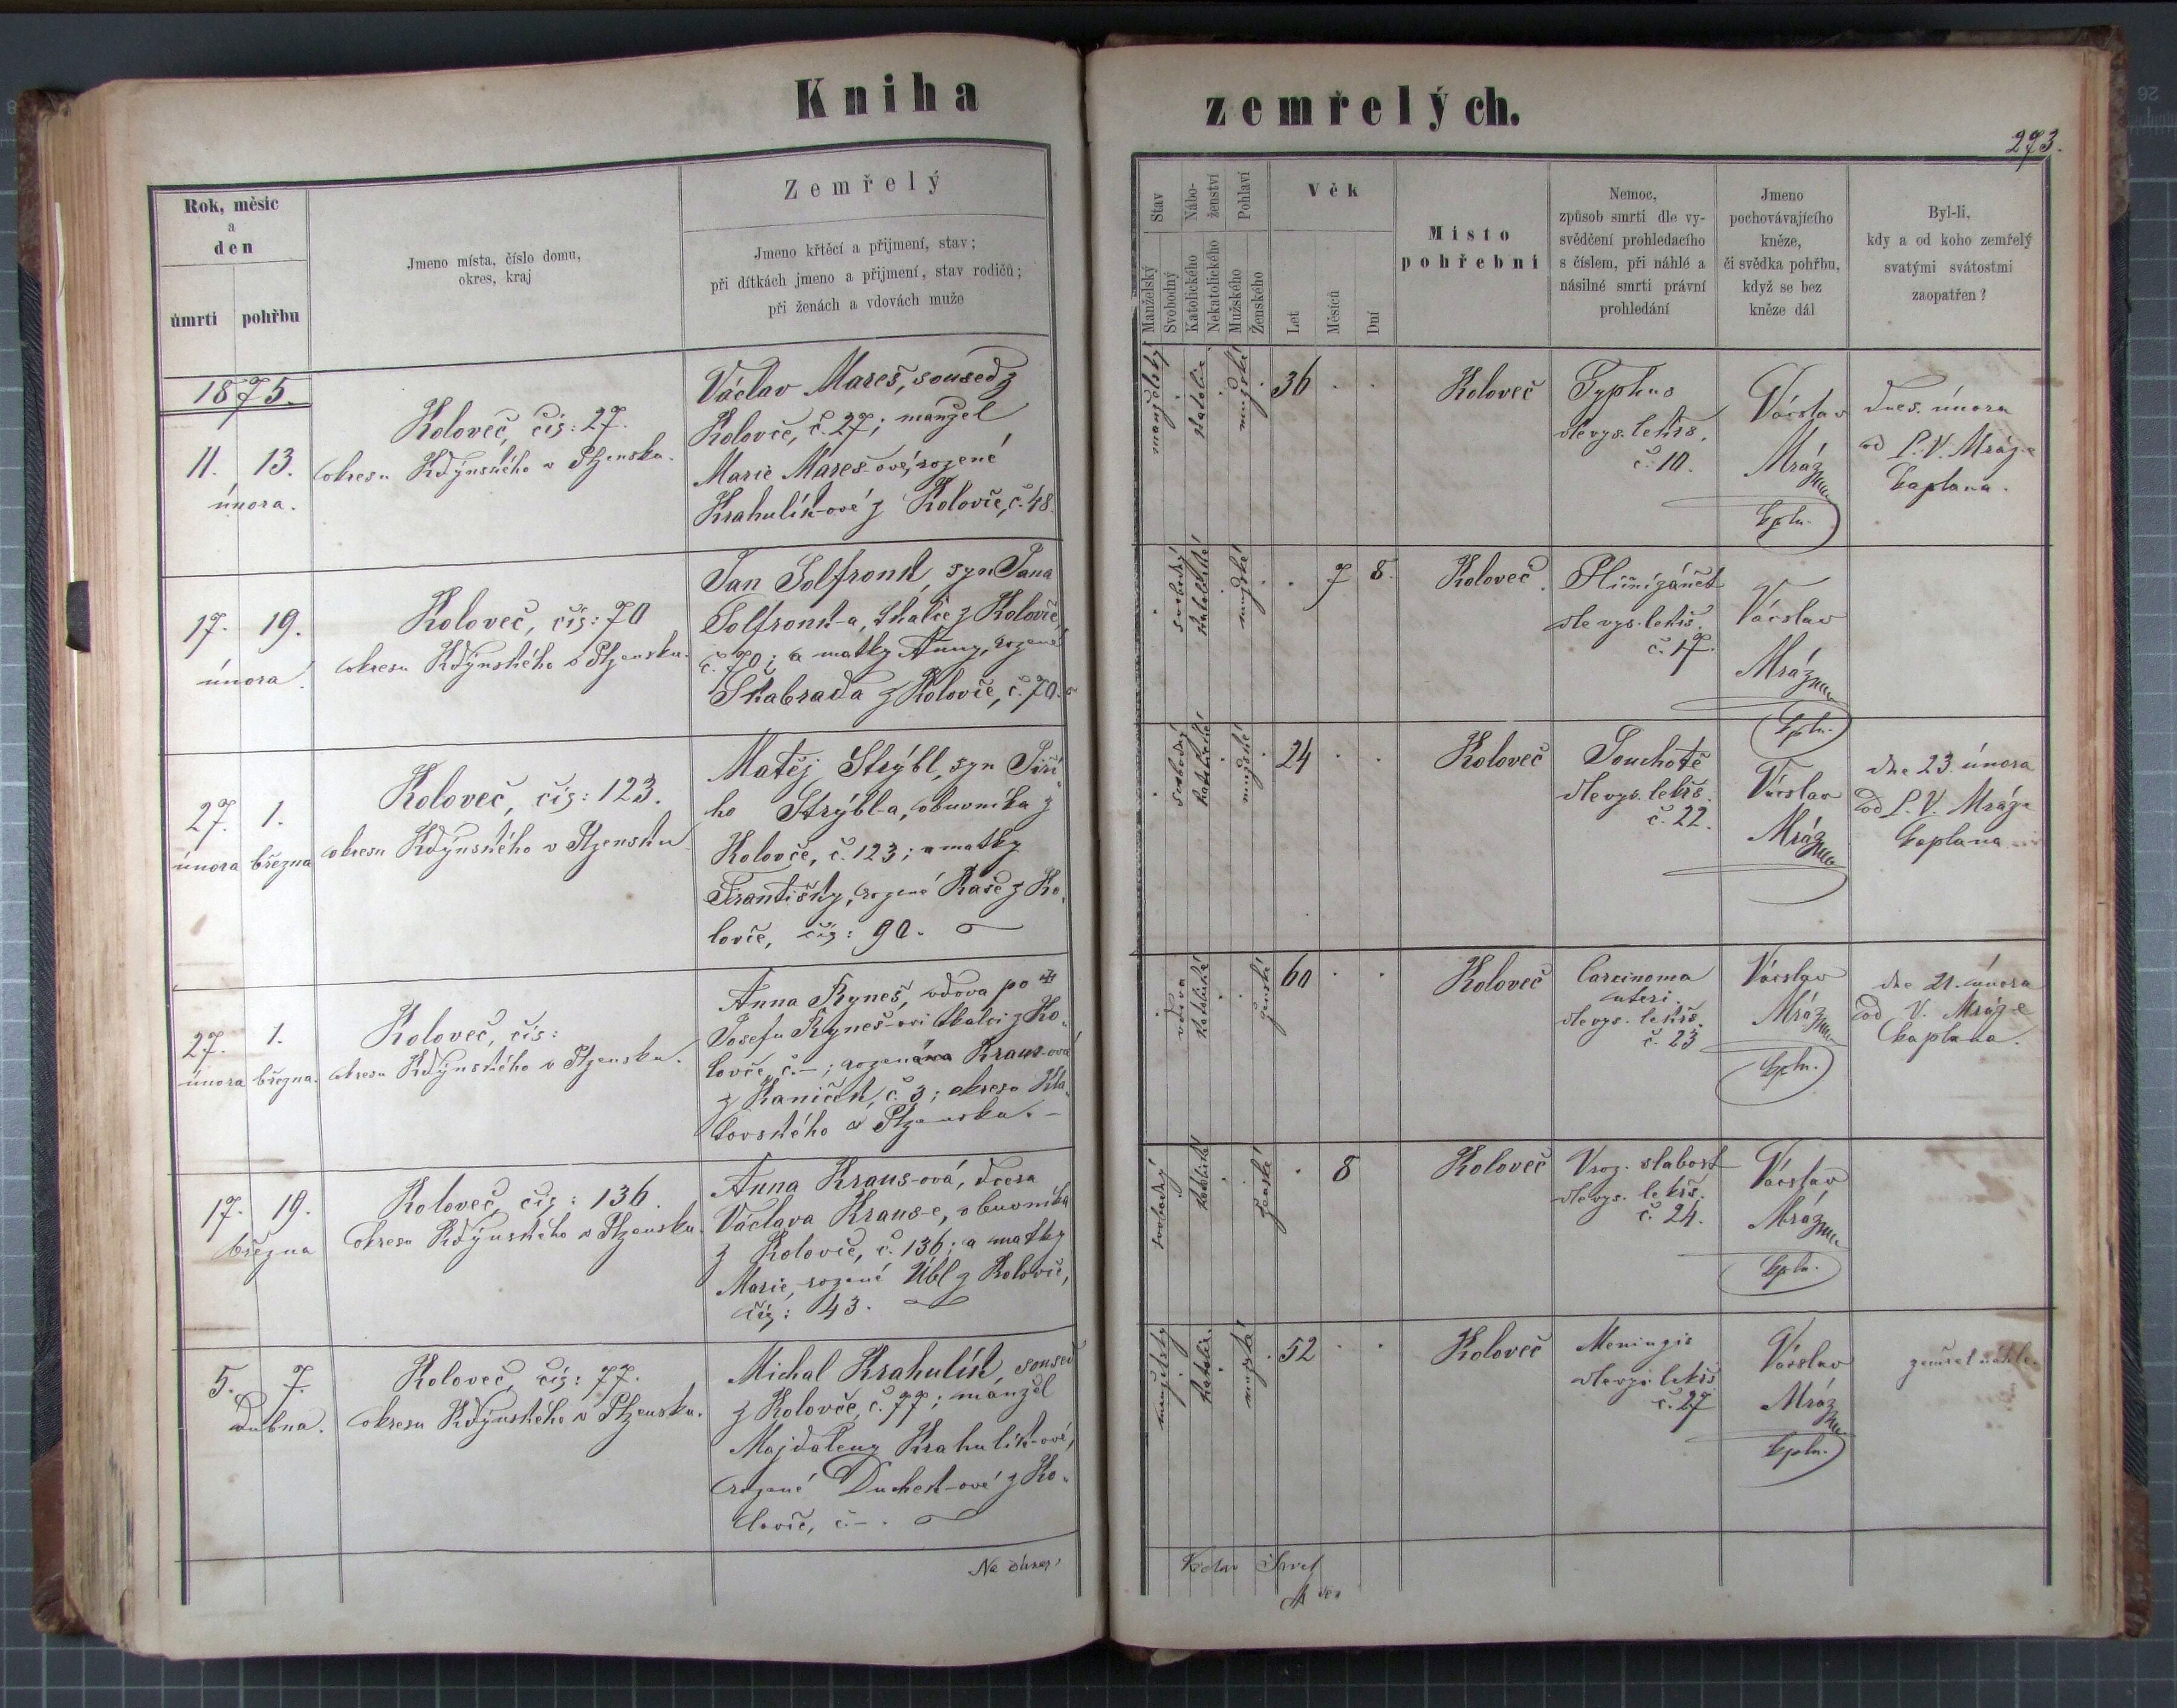 Kniha zemřelých.
273.
Rok, měsíc
a
den
úmrtí
pohřbu
Jmeno místa, číslo domu,
okres, kraj
Zemřelý
Jmeno křtěcí a přijmení, stav;
při dítkách jmeno a přijmení, stav rodičů;
při ženách a vdovách muže
Stav
Manželský
Svobodný
Nábo-
ženství
Katolického
Nekatolického
Pohlaví
Mužského
Ženského
Věk
Let
Měsíců
Dní
Místo
pohřební
Nemoc,
způsob smrti dle vy-
svědčení prohledacího
s číslem, při náhlé a
násilné smrti právní
prohledání
Jmeno
pochovávajícího
kněze,
či svědka pohřbu,
když se bez
kněze dál
Byl-li,
kdy a od koho zemřelý
svatými svátostmi
zaopatřen?
1875.
11. 13.
února.
Koloveč, čís: 27.
okresu Kdýnského v Plzensku.
Václav Mareš, soused z
Kolovče, č. 27; manžel
Marie Mareš-ové, rozené
Krahulík-ové z Kolovče, č. 48.
manželský
katolic.
mužské
36
Koloveč
Typhus
dle vys. lekřs.
č. 10.
Vácslav
Mráz
kpln.
února
od P. V. Mráze
kaplana.
17. 19.
února.
Koloveč, čís: 70
okresu Kdýnského v Plzensku.
Jan Solfronk, syn Jana
Solfronk-a, tkalce z Kolovče,
č. 70; a matky Anny, rozené
Skabrada z Kolovče, č. 70.
svobodný
katolické
mužské
7 8.
Koloveč.
dle vys. lekřs.
č. 17.
Vácslav
Mráz
kpln.
27. 1.
února března
Koloveč, čís: 123.
okresu Kdýnského v Plzensku
Matěj Strýbl, syn Jiří
ho Strýbl-a, obuvníka z
Kolovče, č. 123; a matky
Františky, rozené Kaše z Ko
lovče, čís: 90.
svobodný
katolické
mužské
24
Koloveč
Souchotě
dle vys. lekřs.
č. 22.
Vácslav
Mráz
dne 23. února
od P. V. Mráze
kaplana
27. 1.
února března.
Koloveč, čís:
okresu Kdýnského v Plzensku.
Anna Ryneš, vdova po
Josefu Ryneš-ovi tkalci z Ko
lovče, č. –; rozená Kraus-ová
z Kaniček, č. 3; okresu Kla
tovského v Plzensku. –
vdova
katolické
ženské
60
Koloveč
Carcinoma
uteri.
dle vys. lekřs.
č. 23
Vácslav
Mráz
kpln.
dne 21. února
od V. Mráze
kaplana.
17. 19.
března
Koloveč, čís: 136.
okresu Kdýnského v Plzensku.
Anna Kraus-ová, dcera
Václava Kraus-e, obuvníka
z Kolovče, č. 136; a matky
Marie, rozené Übl z Kolovče,
čís: 43.
svobodný
katolické
ženské
8
Koloveč
Vroz. slabost
dle vys. lekřs.
č. 24.
Vácslav
Mráz
kpln.
5. 7.
Dubna.
Koloveč, čís: 77.
okresu Kdýnského v Plzensku.
Michal Krahulík, soused
z Kolovče, č. 77; manžel
Majdaleny Krahulík-ové,
rozené Duchek-ové z Ko-
lovče, č. – .
manželský
katolic.
mužské
52
Koloveč
Meningis
dle vys. lekřs
č. 27
Vácslav
Mráz
kpln.
zemřel náhle.